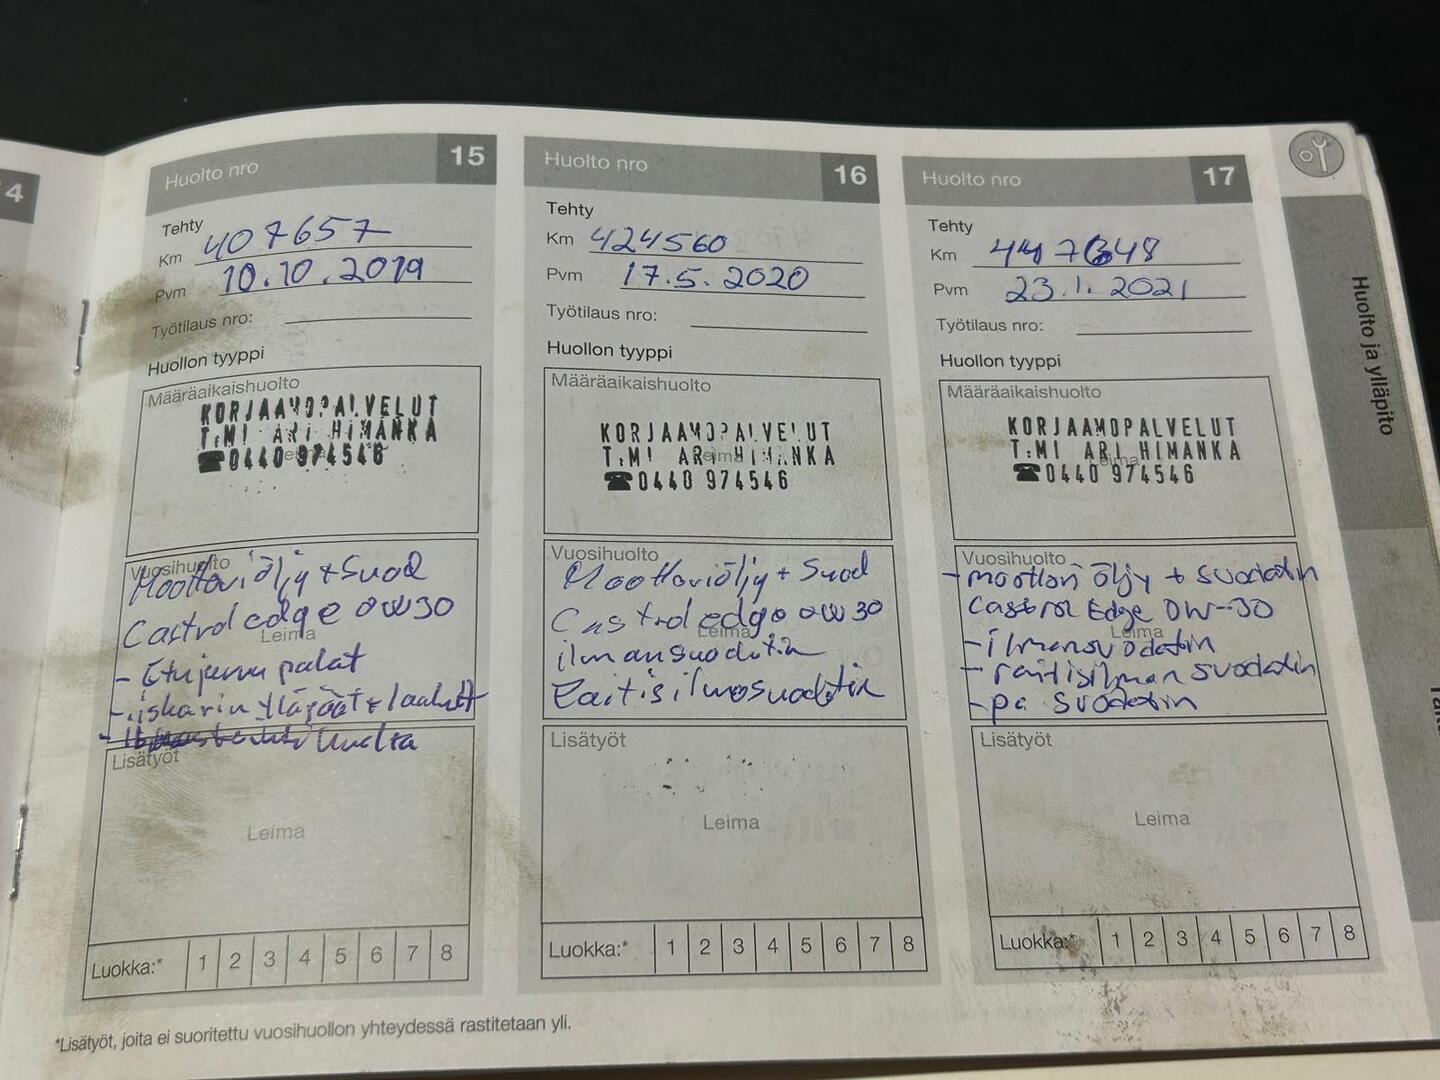 4
Huolto nro 15
Tehty
Km 407657
Pvm 10.10.2019
Työtilaus nro:
Huollon tyyppi
Määräaikaishuolto
KORJAAMOPALVELUT
T:MI ARI HIMANKA
☎0440 974546
Leima
Vuosihuolto
Moottoriöljy + Suod
Castrol edge 0W30
Leima
- Etujarru palat
- iskarin yläpäät + laakerit
huolto
Lisätyöt
Leima
Luokka:* 1 2 3 4 5 6 7 8
Huolto nro 16
Tehty
Km 424560
Pvm 17.5.2020
Työtilaus nro:
Huollon tyyppi
Määräaikaishuolto
KORJAAMOPALVELUT
T:MI ARI HIMANKA
☎0440 974546
Leima
Vuosihuolto
Moottoriöljy + Suod
Castrol edge 0W30
Leima
ilmansuodatin
Raitisilmasuodatin
Lisätyöt
Leima
Luokka:* 1 2 3 4 5 6 7 8
Huolto nro 17
Tehty
Km 447648
Pvm 23.1.2021
Työtilaus nro:
Huollon tyyppi
Määräaikaishuolto
KORJAAMOPALVELUT
T:MI ARI HIMANKA
☎0440 974546
Leima
Vuosihuolto
- moottori öljy + suodatin
Castrol Edge 0W-30
Leima
- ilmansuodatin
- raitisilman suodatin
- pa suodatin
Lisätyöt
Leima
Luokka:* 1 2 3 4 5 6 7 8
*Lisätyöt, joita ei suoritettu vuosihuollon yhteydessä rastitetaan yli.
Huolto ja ylläpito